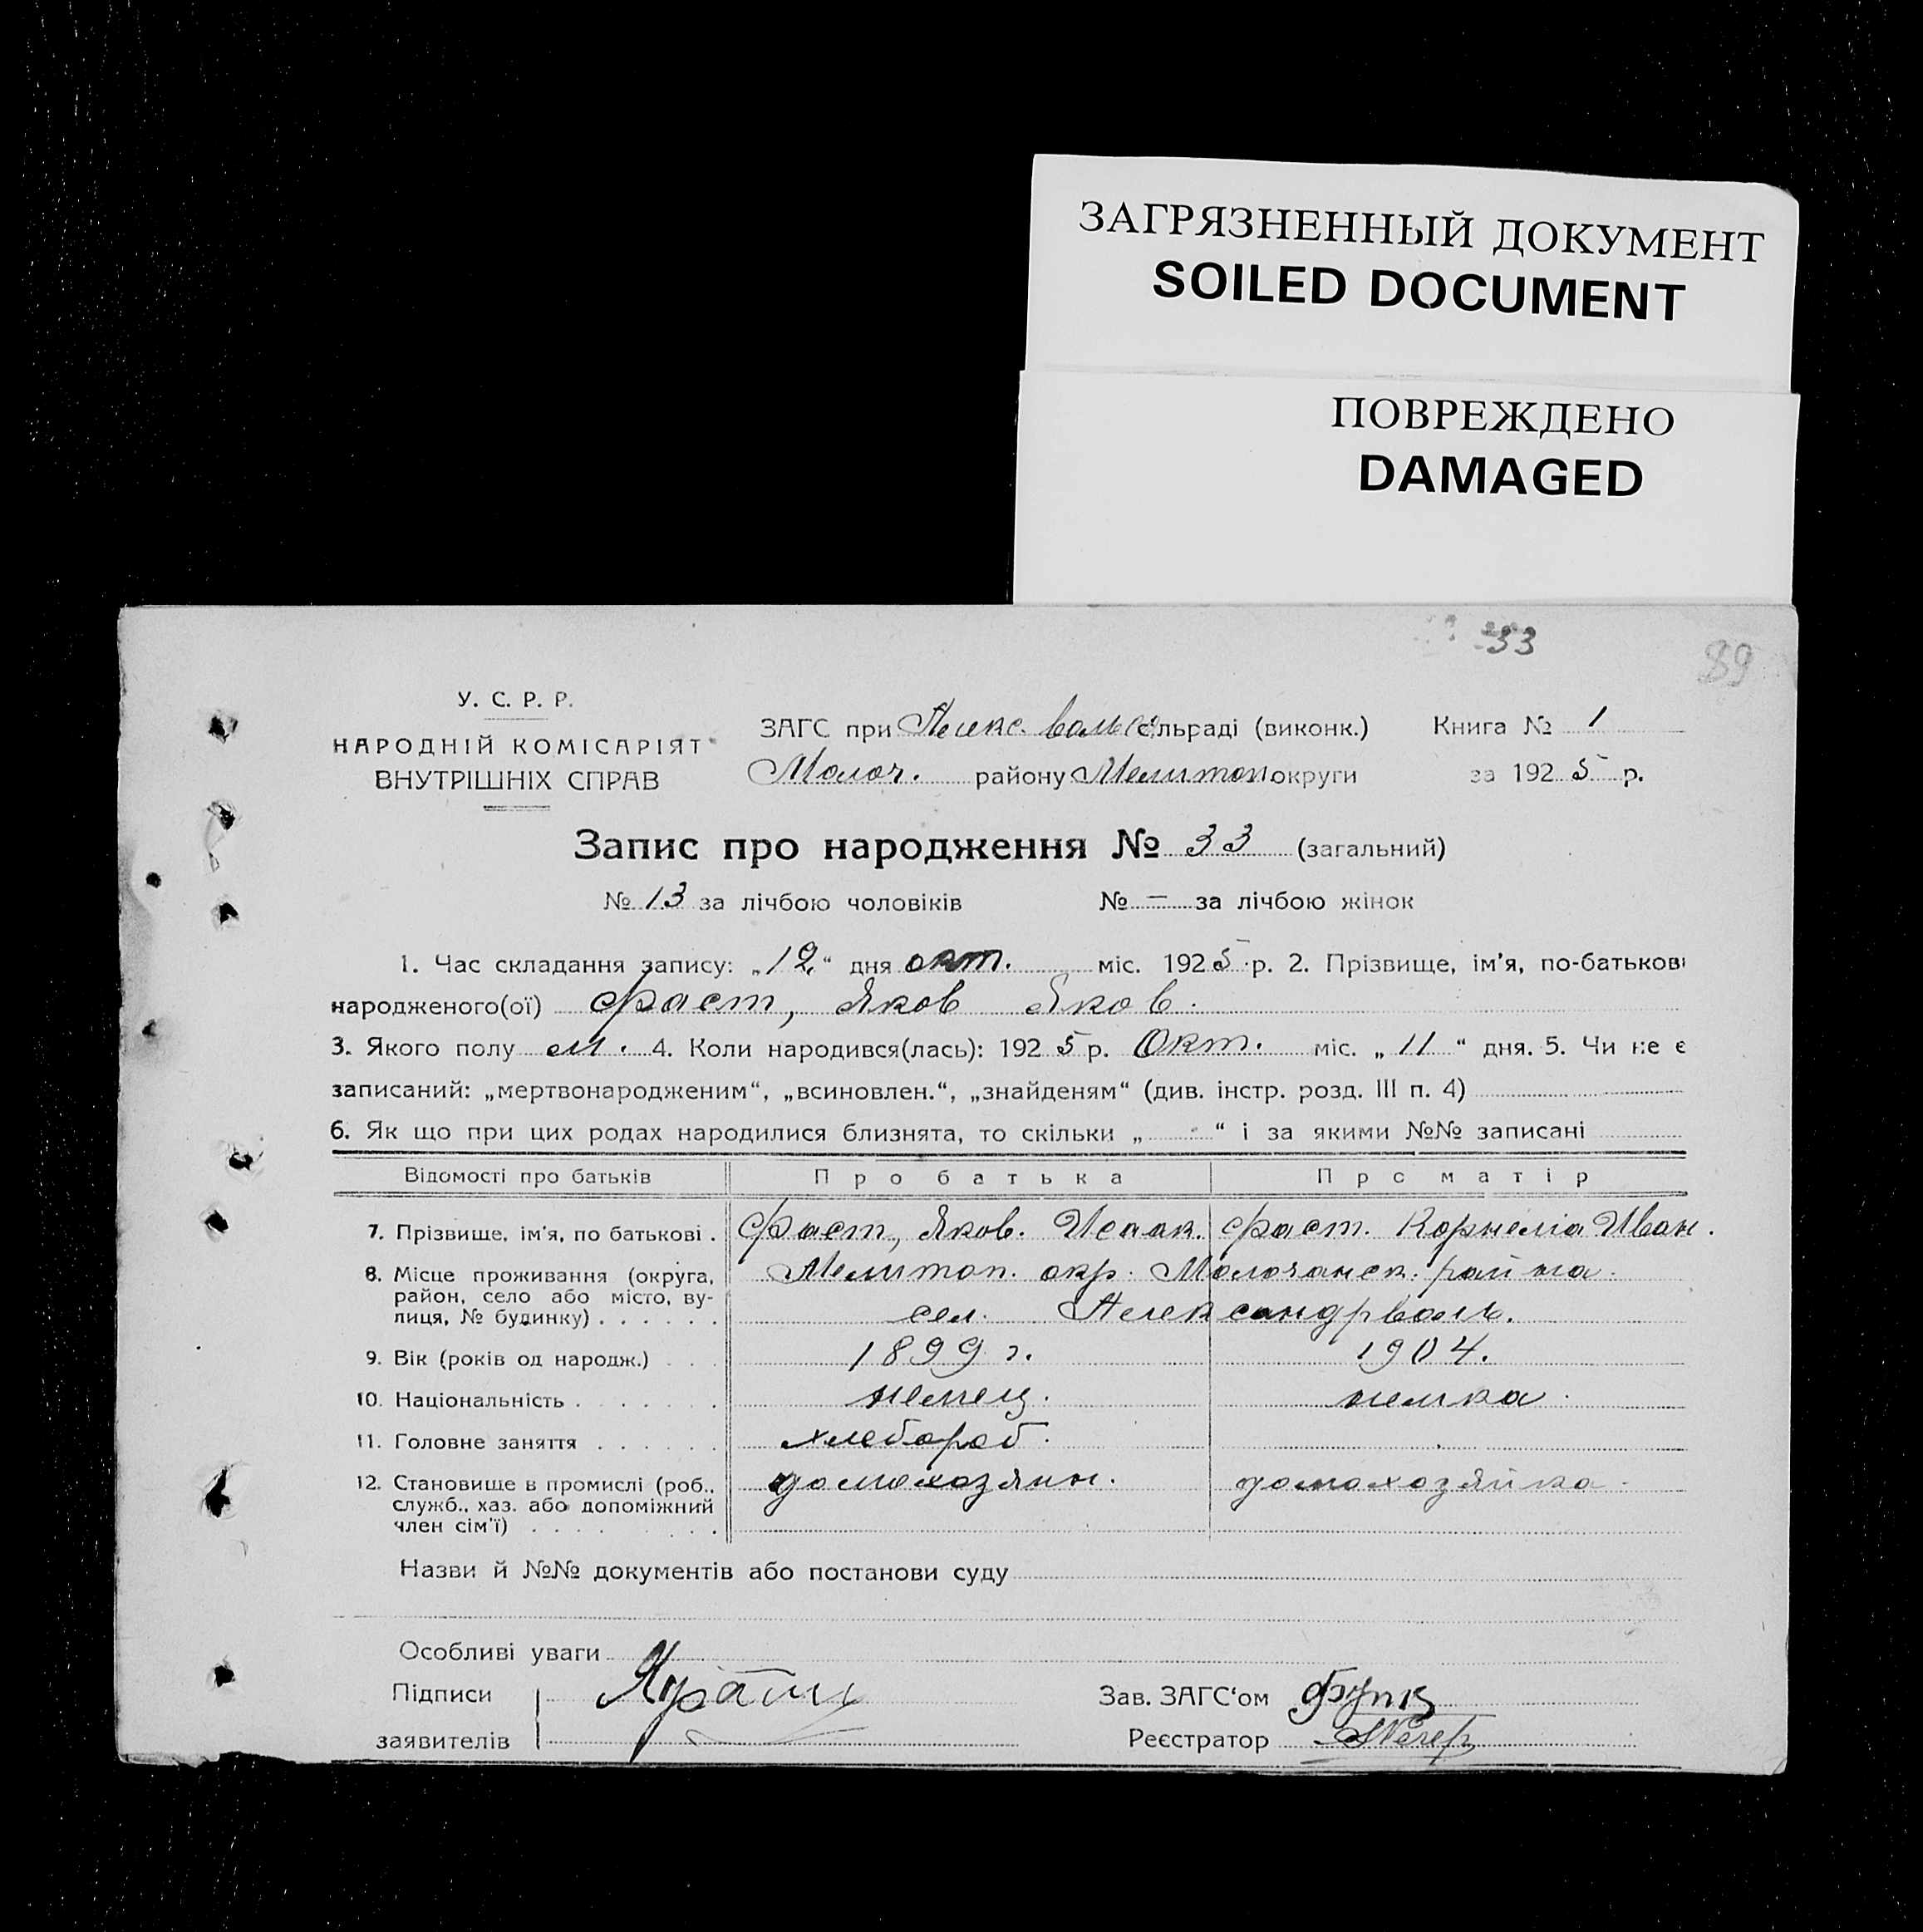 ЗАГРЯЗНЕННЫЙ ДОКУМЕНТ
SOILED DOCUMENT
ПОВРЕЖДЕНО
DAMAGED
33
89
У. С. Р. Р.
НАРОДНІЙ КОМІСАРІЯТ
ВНУТРІШНІХ СПРАВ
ЗАГС при Алекс. вальск сільраді (виконк.) Книга № 1
Молоч. району Мелитоп округи за 1925 р.
Запис про народження № 33 (загальний)
№ 13 за лічбою чоловіків № — за лічбою жінок
1. Час складання запису: „12“ дня окт. міс. 1925 р. 2. Прізвище, ім'я, по-батькові
народженого(ої) Фаст, Яков Яков.
3. Якого полу м. 4. Коли народився(лась): 1925 р. Окт. міс. „11“ дня. 5. Чи не є
записаний: „мертвонародженим“, „всиновлен.“, „знайденям“ (див. інстр. розд. III п. 4)
6. Як що при цих родах народилися близнята, то скільки „ “ і за якими №№ записані
Відомості про батьків Про батька Про матір
7. Прізвище, ім'я, по батькові . Фаст, Яков. Исаак. Фаст. Корнелія Иван.
8. Місце проживання (округа, Мелитоп. окр. Молочанск. района.
район, село або місто, ву-
лиця, № будинку) . . . . . . сел. Александрваль.
9. Вік (років од народж.) . . . 1899 г. 1904.
10. Національність . . . . . . . немец. немка.
11. Головне заняття . . . . . . хлебороб.
12. Становище в промислі (роб., домохозяин. домохозяйка.
служб., хаз. або допоміжний
член сім'ї) . . . . . . . .
Назви й №№ документів або постанови суду
Особливі уваги
Підписи Зав. ЗАГС'ом Функ
заявителів Реєстратор